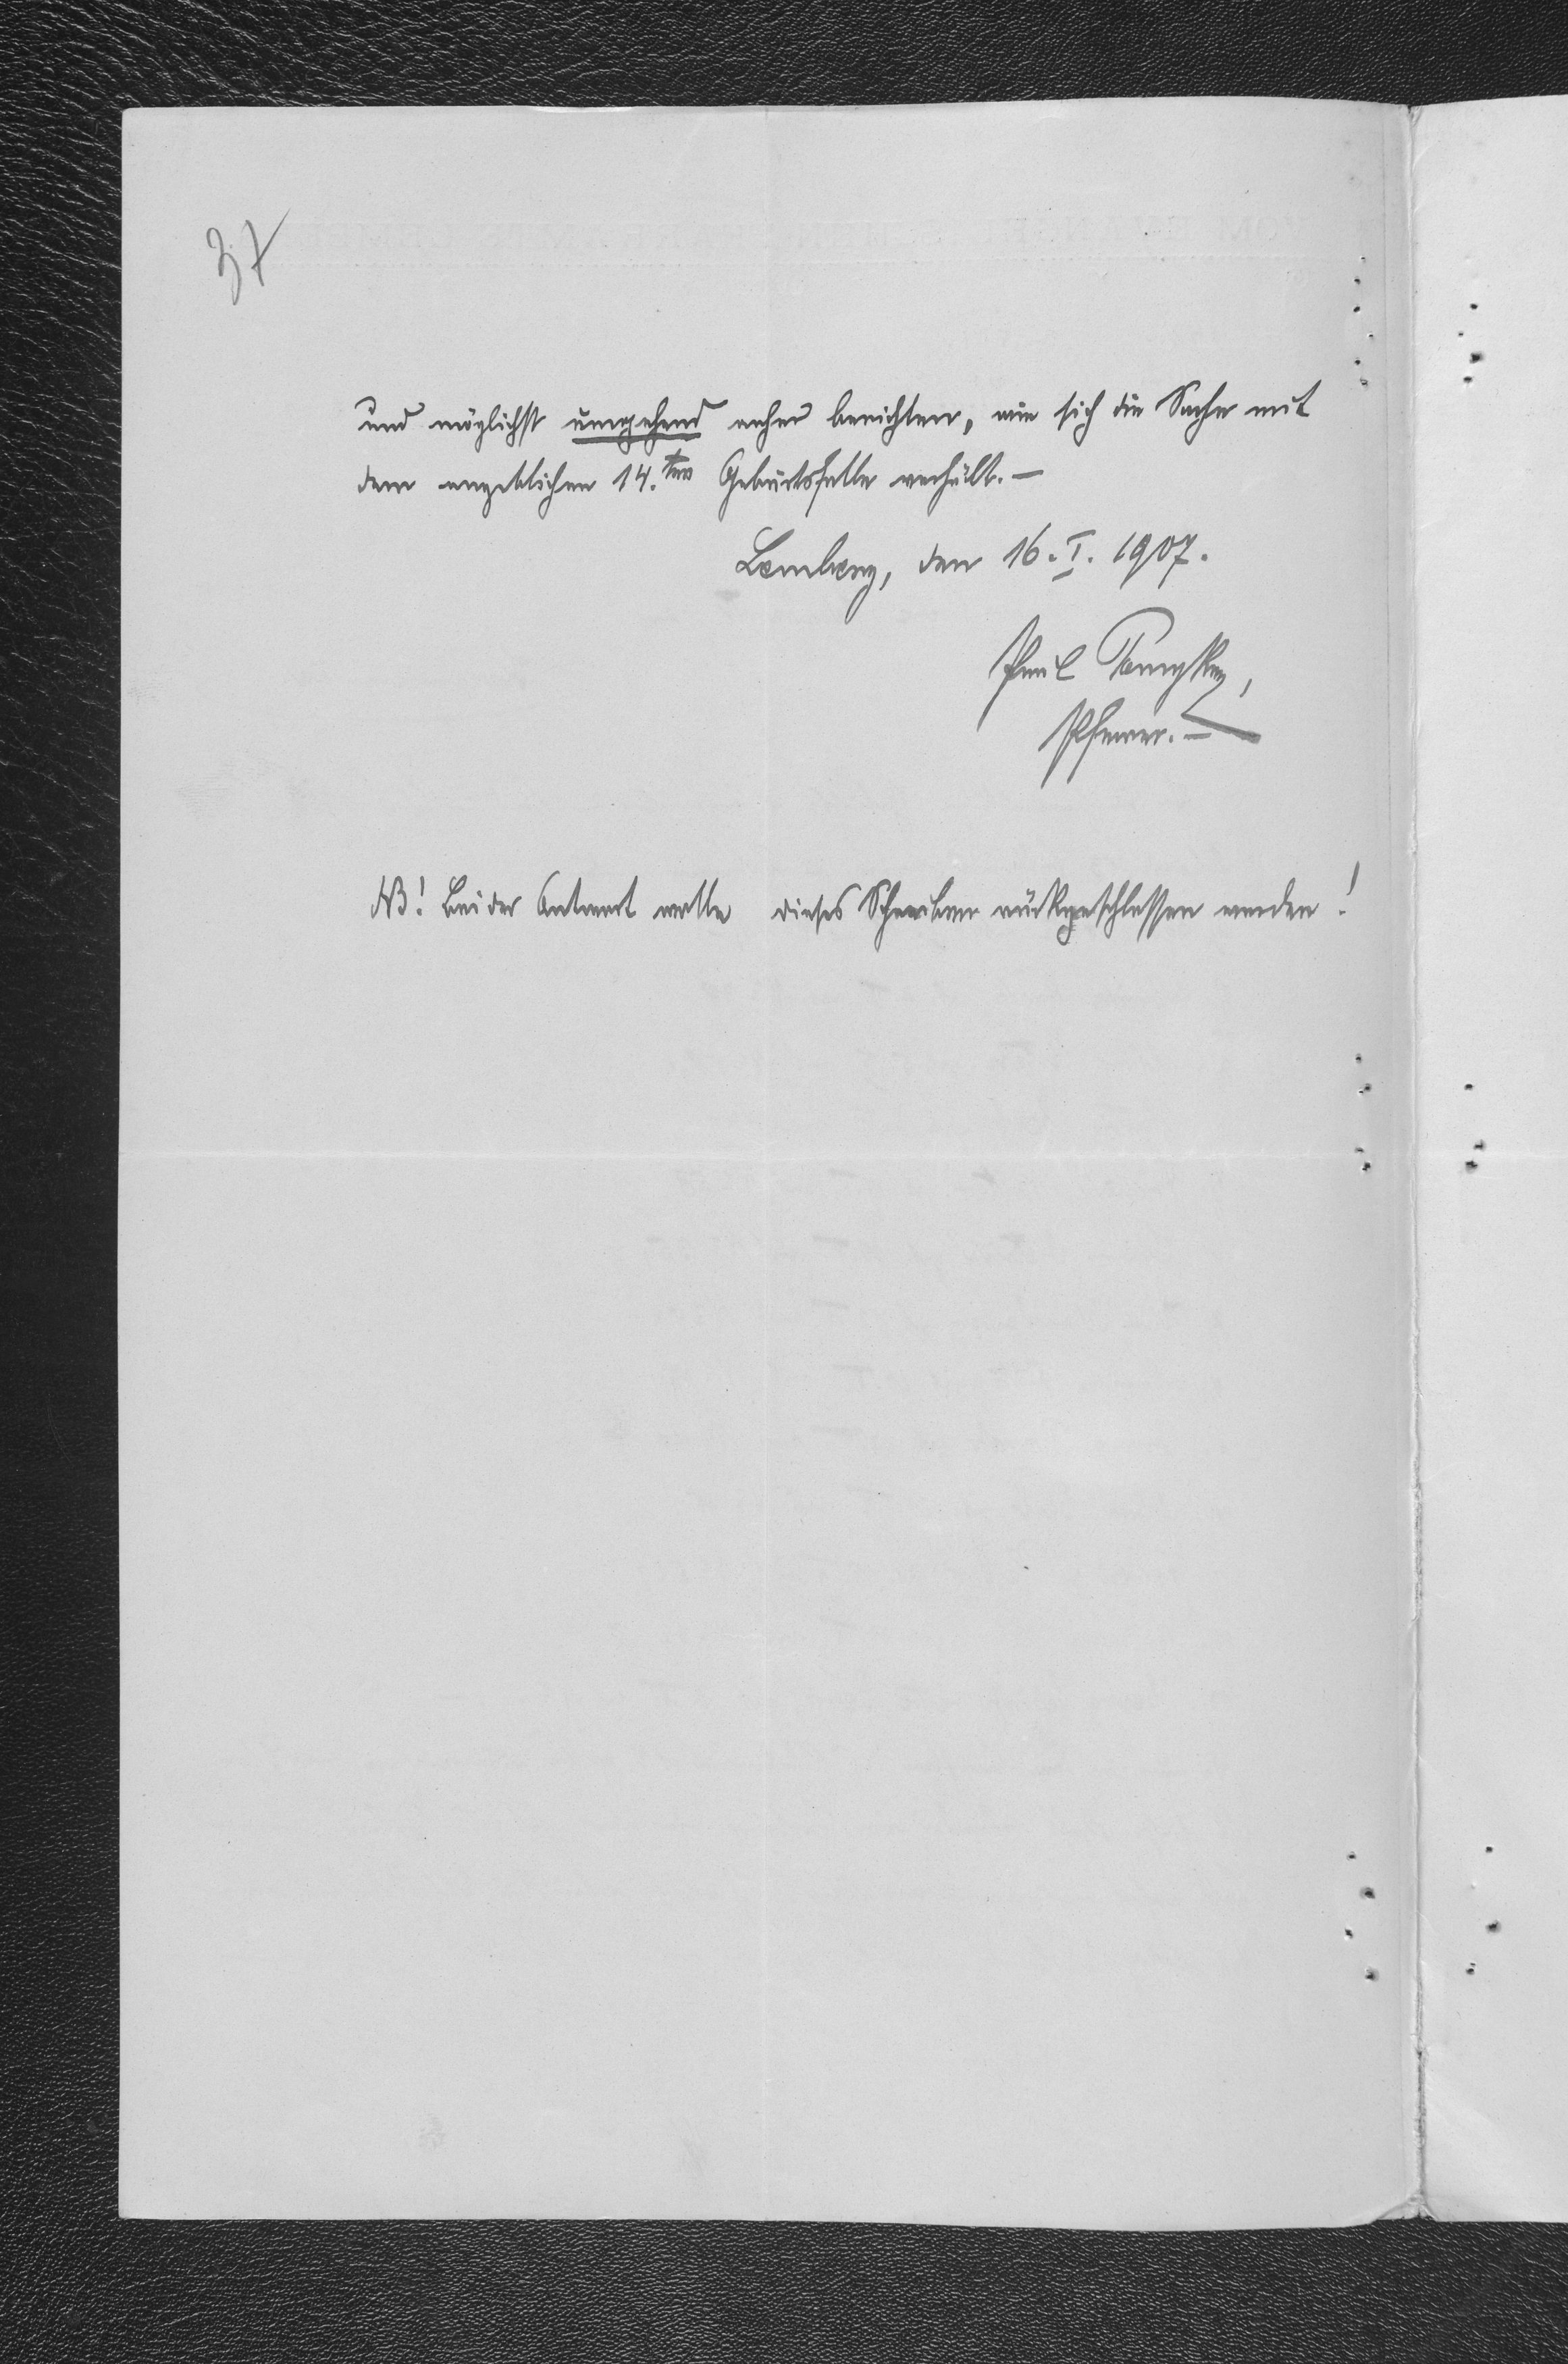 37
und möglichst umgehend anher berichten, wie sich die Sache mit
dem angeblichen 14.ten Geburtsfalle verhält. —
Lemberg, den 16. I. 1907.
Paul
Pfarrer. —
NB! Bei der Antwort wolle dieses Schreiben rückgeschlossen werden!